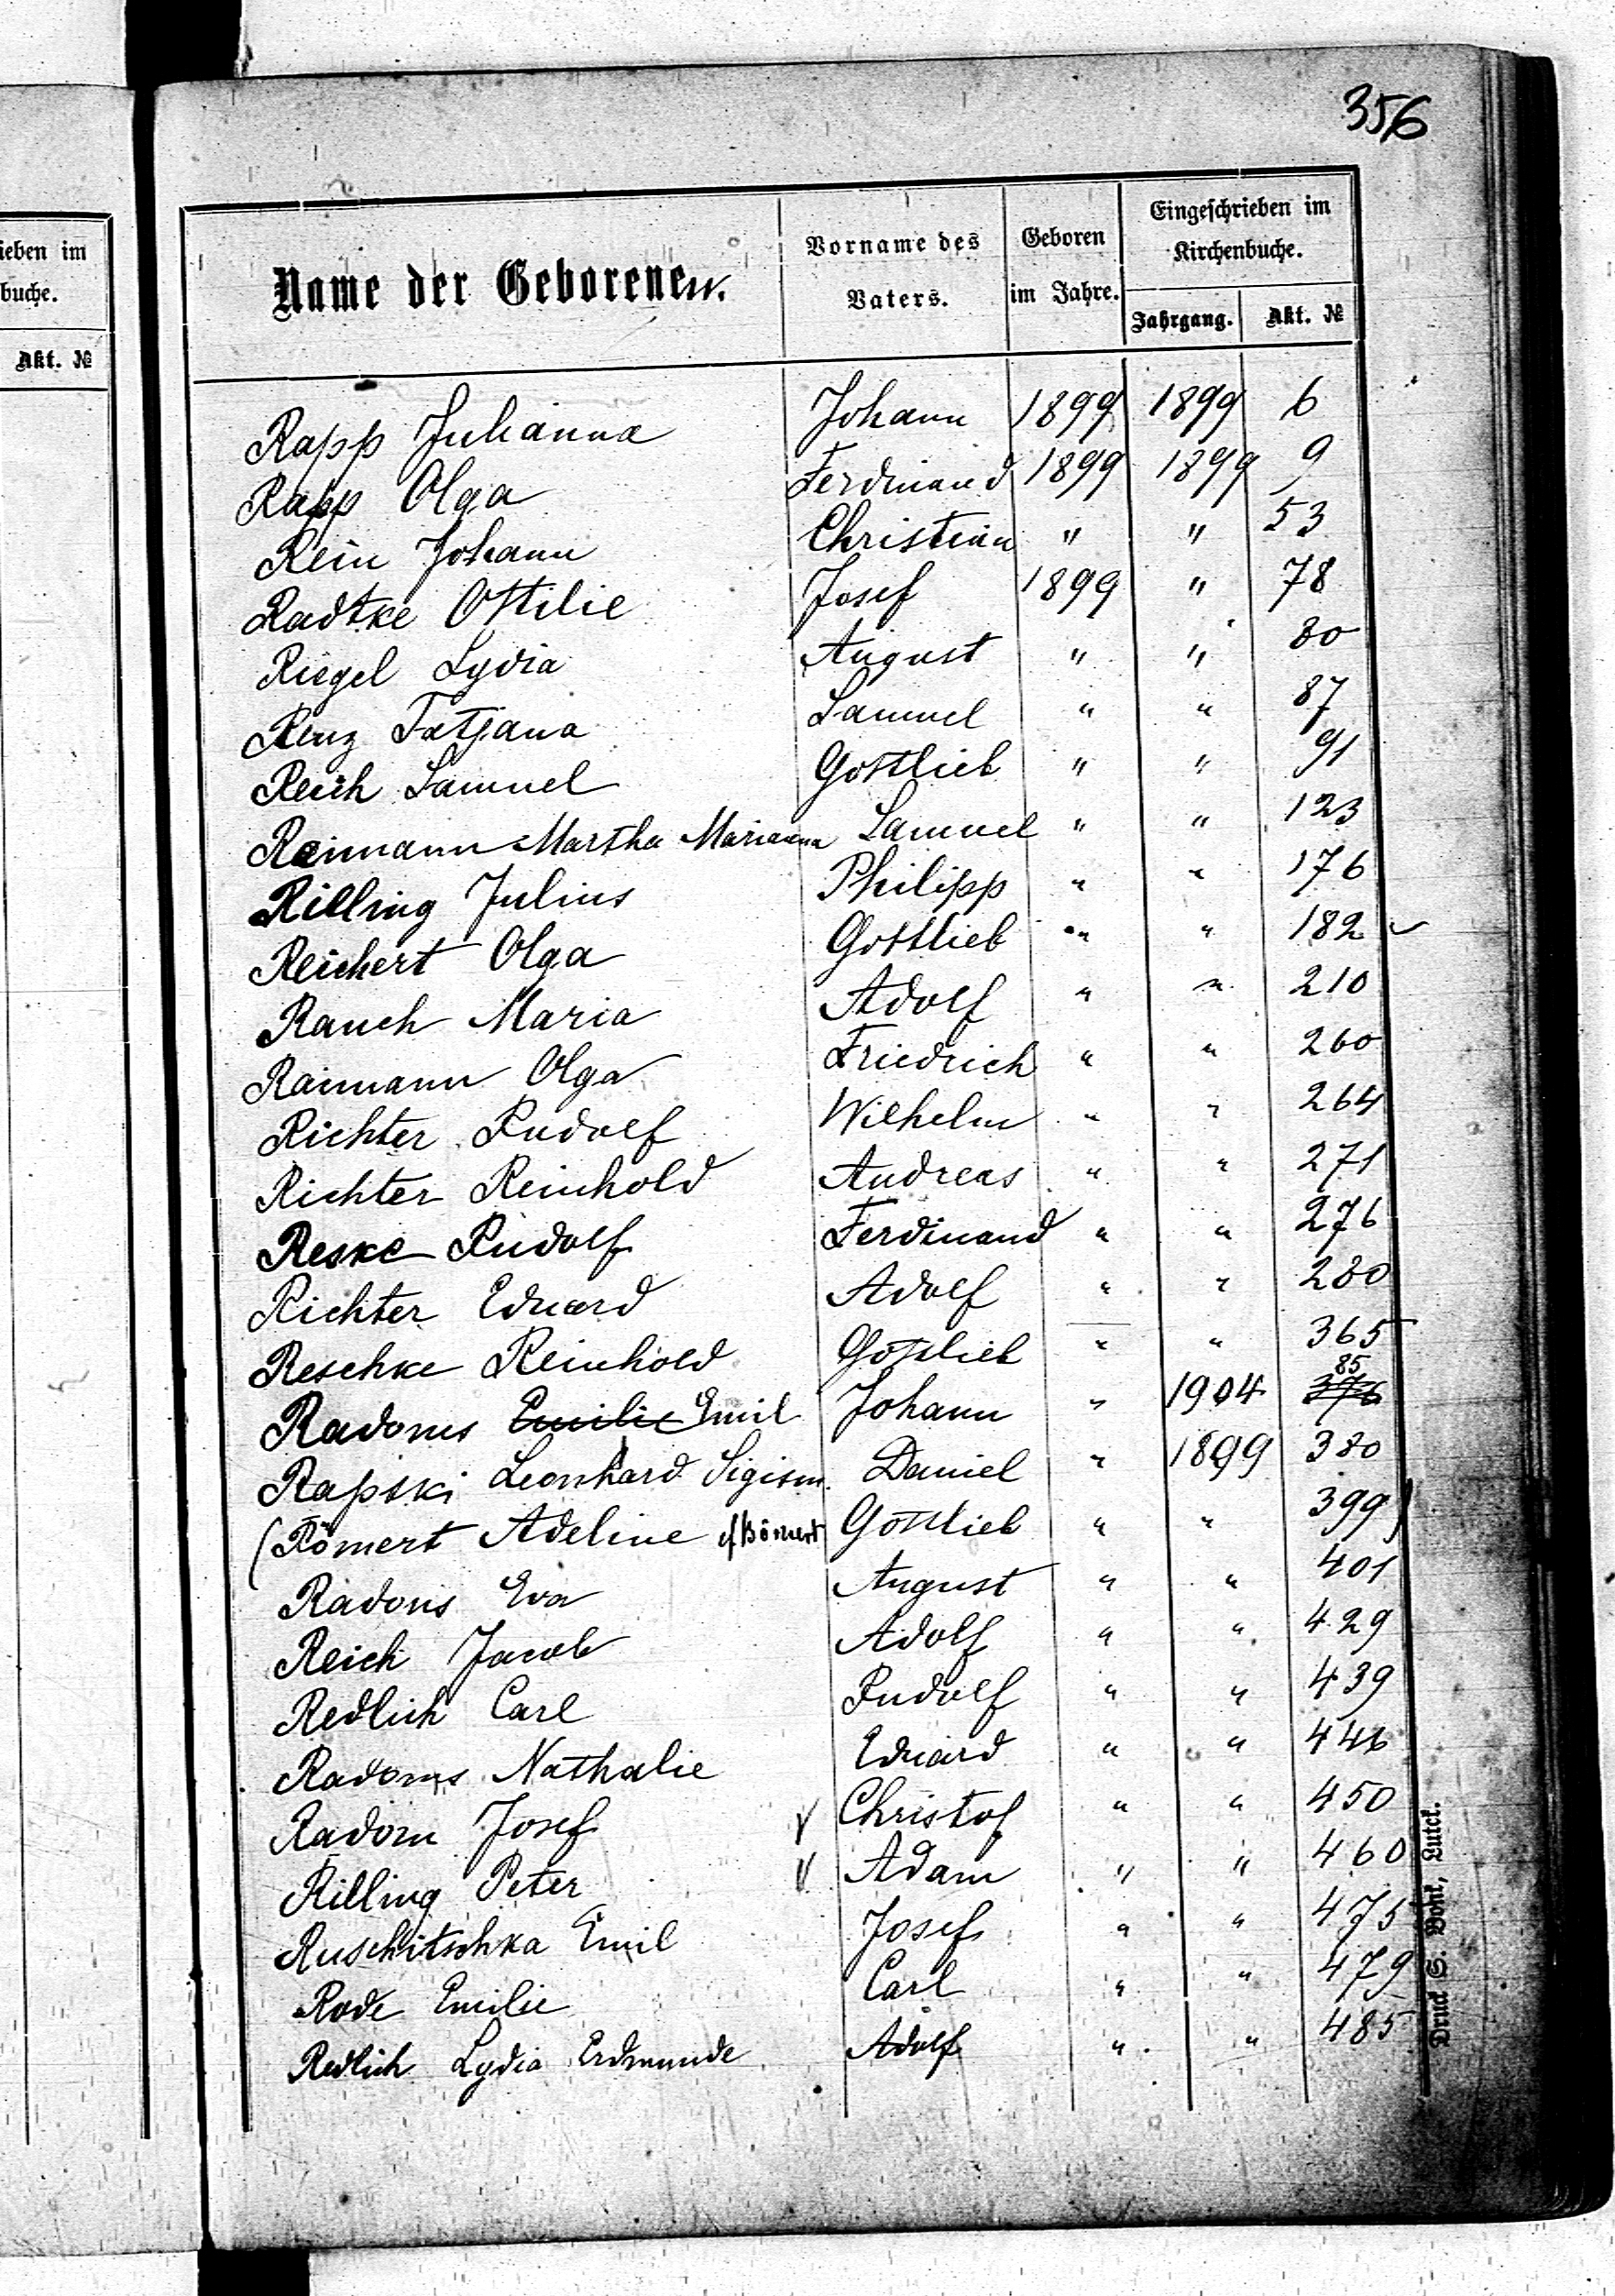 356
ieben im
buche.
Akt. №
Name der Geborenen.
Vorname des Vaters.
Geboren im Jahre.
Eingeschrieben im Kirchenbuche.
Jahrgang. Akt. №
Rapp Julianna Johann 1899 1899 6
Rapp Olga Ferdinand 1899 1899 9
Rein Johann Christian " " 53
Radtke Ottilie Josef 1899 " 78
Riegel Lydia August " " 80
Renz Tatjana Samuel " " 87
Reich Samuel Gottlieb " " 91
Reimann Martha Marianna Samuel " " 123
Rilling Julius Philipp " " 176
Reichert Olga Gottlieb " " 182
Rauch Maria Adolf " " 210
Raimann Olga Friedrich " " 260
Richter Rudolf Wilhelm " " 264
Richter Reinhold Andreas " " 271
Reske Rudolf Ferdinand " " 276
Richter Eduard Adolf " " 280
Reschke Reinhold Gottlieb " " 365
Radoms Emilie Emil Johann " 1904 376 85
Rapski Leonhard Sigism. Daniel " 1899 380
(Römert Adeline cf Bömert Gottlieb " " 399)
Radoms Eva August " " 401
Reich Jacob Adolf " " 429
Redlich Carl Rudolf " " 439
Radoms Nathalie Eduard " " 446
Radom Josef Christof " " 450
Rilling Peter Adam " " 460
Ruschitschka Emil Josef " " 475
Rode Emilie Carl " " 479
Redlich Lydia Erdmunde Adolf " " 485
Druck S. Bonk, Lutck.